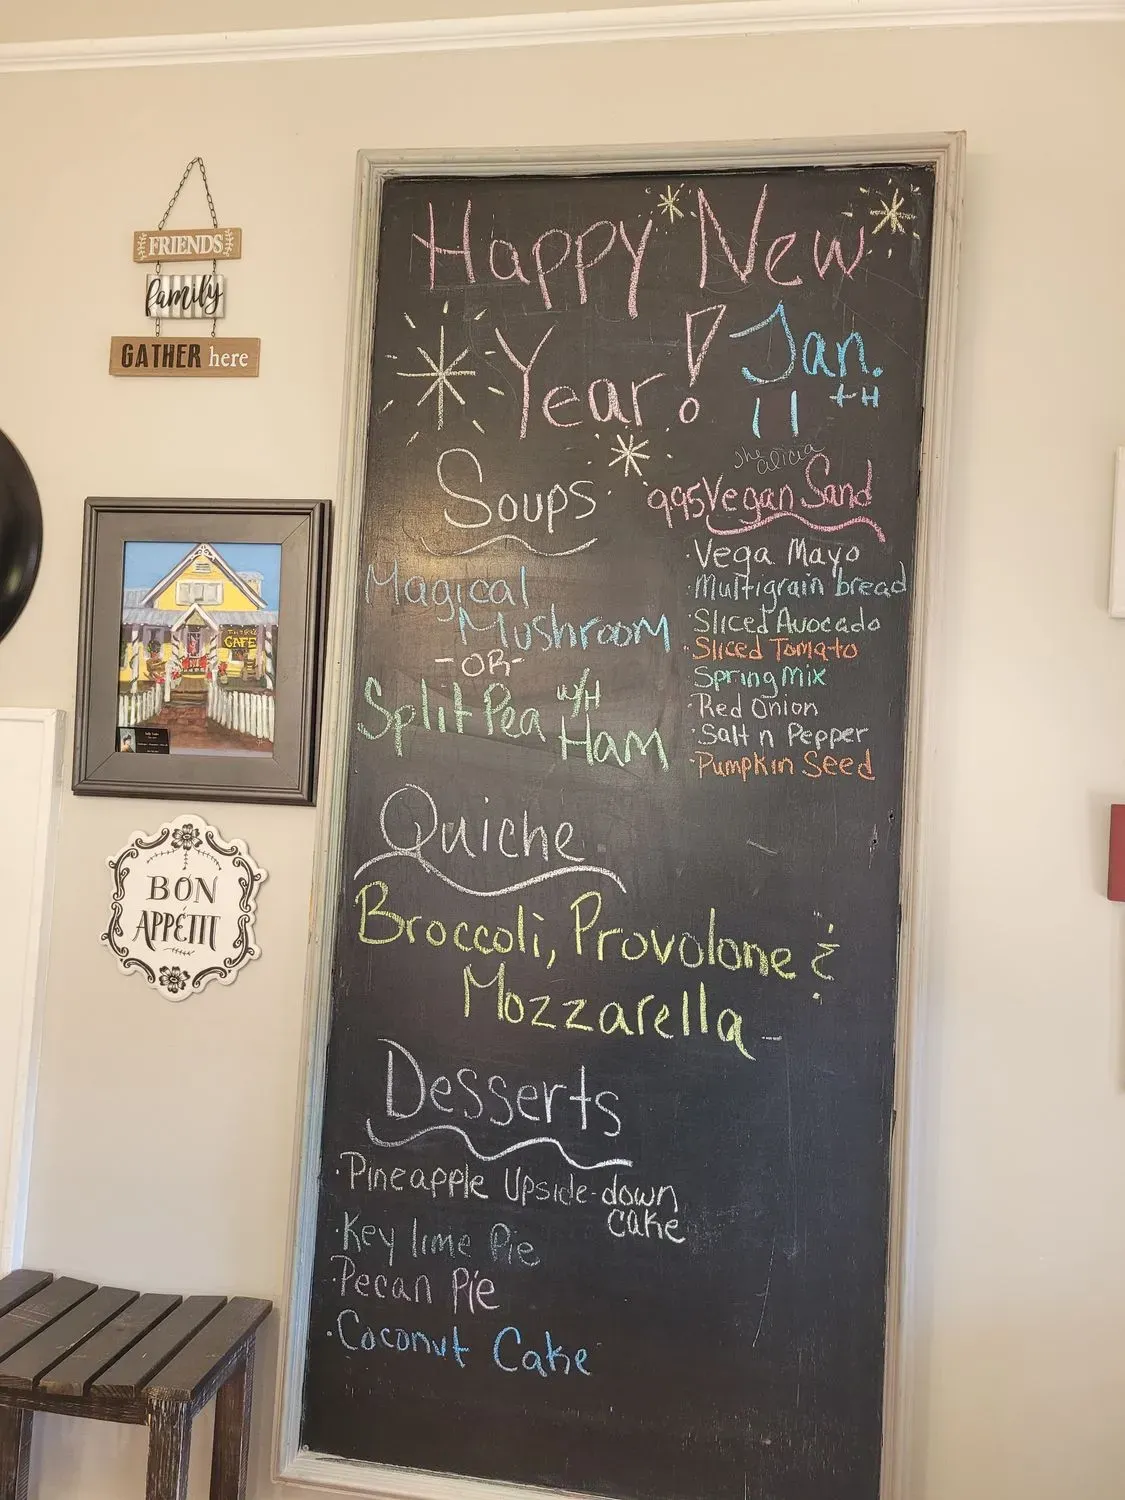 FRIENDS
family
GATHER here
CAFE
BON
APPÉTIT
Happy New
Year! Jan.
11TH
Soups
Magical
Mushroom
-OR-
Split Pea w/H
Ham
the alicia
995 Vegan Sand
·Vega Mayo
·Multigrain bread
·Sliced Avocado
·Sliced Tomato
Spring Mix
·Red Onion
·Salt n Pepper
·Pumpkin Seed
Quiche
Broccoli, Provolone &
Mozzarella
Desserts
·Pineapple Upside-down
cake
·Key lime Pie
·Pecan Pie
·Coconut Cake